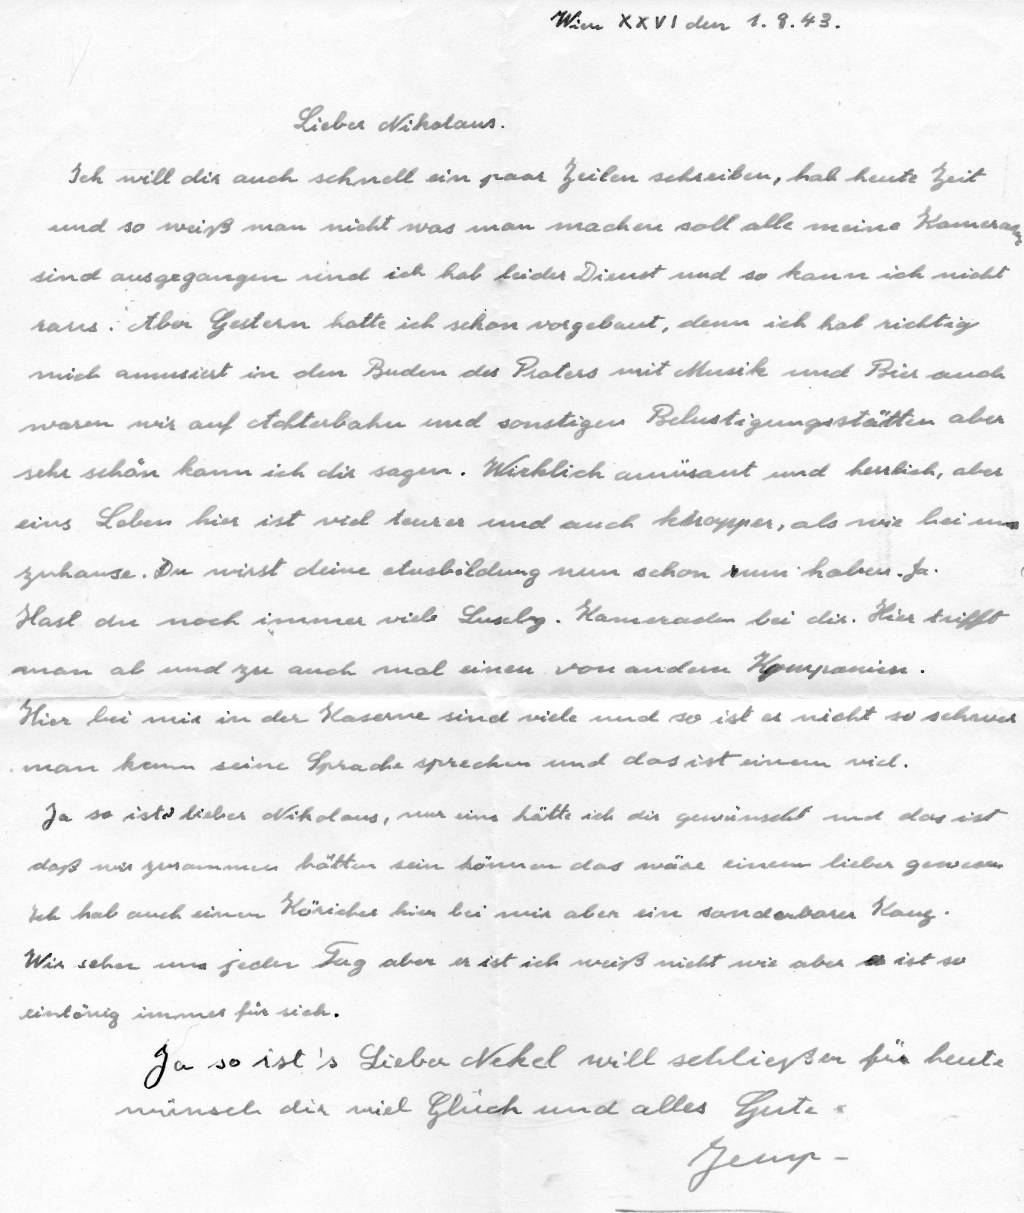 Wien XXVI den 1.8.43.
Lieber Nikolaus.
Ich will dir auch schnell ein paar Zeilen schreiben, hab heute Zeit
und so weiß man nicht was man machen soll alle meine
sind ausgegangen und ich hab leider Dienst und so kann ich nicht
raus. Aber Gestern hatte ich schon vorgebaut, denn ich hab richtig
mich amusiert in den Buden des Praters mit Musik und Bier auch
waren wir auf Achterbahn und sonstigen Belustigungsstätten aber
sehr schön kann ich dir sagen. Wirklich amüsant und herrlich, aber
eins Leben hier ist viel teurer und auch knapper, als wie bei uns
zuhause. Du wirst deine Ausbildung nun schon rum haben. Ja.
Hast du noch immer viele Luxbg. Kameraden bei dir. Hier trifft
man ab und zu auch mal einen von andern Kompanien.
Hier bei mir in der Kaserne sind viele und so ist es nicht so schwer
man kann seine Sprache sprechen und das ist einem viel.
Ja so ists lieber Nikolaus, nur eins hätte ich dir gewünscht und das ist
daß wir zusammen hätten sein können das wäre einem lieber gewesen
Ich hab auch einen Köricher hier bei mir aber ein sonderbarer Kauz.
Wir sehen uns jeden Tag aber er ist ich weiß nicht wie aber er ist so
eintönig immer für sich.
Ja so ist's Lieber Nekel will schließen für heute
wünsch dir viel Glück und alles Gute.
Jemp -